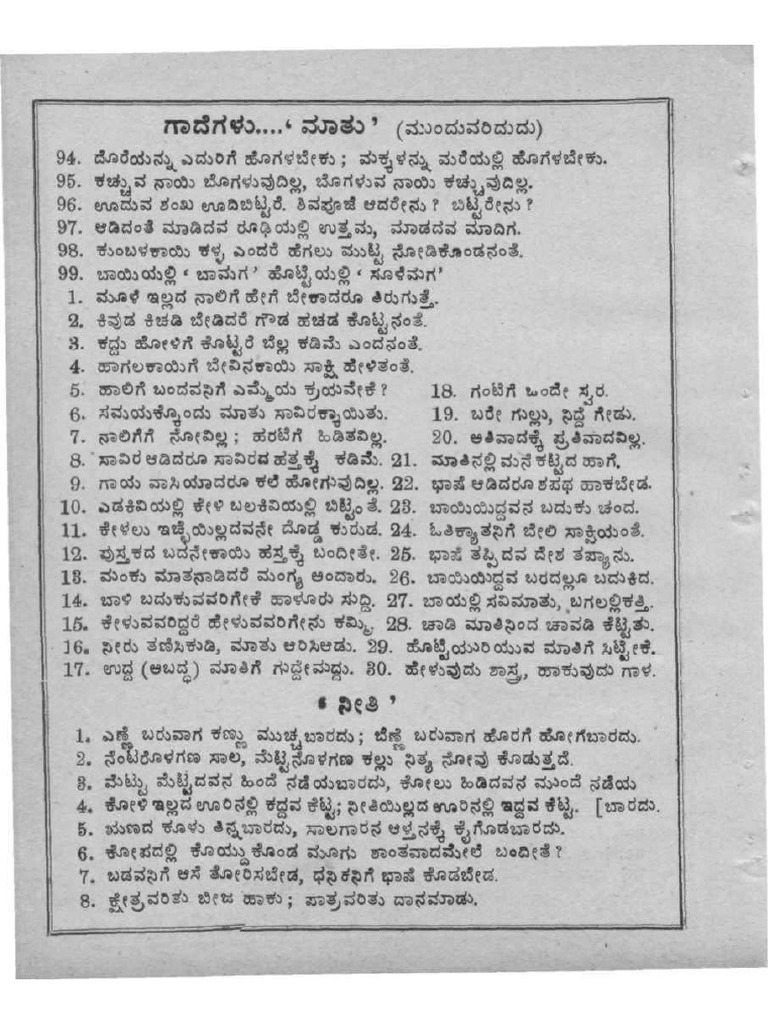 ಗಾದೆಗಳು....‘ ಮಾತು’ (ಮುಂದುವರಿದುದು)
94. ದೊರೆಯನ್ನು ಎದುರಿಗೆ ಹೊಗಳಬೇಕು ; ಮಕ್ಕಳನ್ನು ಮರೆಯಲ್ಲಿ ಹೊಗಳಬೇಕು.
95. ಕಚ್ಚುವ ನಾಯಿ ಬೊಗಳುವುದಿಲ್ಲ, ಬೊಗಳುವ ನಾಯಿ ಕಚ್ಚುವುದಿಲ್ಲ.
96. ಊದುವ ಶಂಖ ಊದಿಬಿಟ್ಟರೆ. ಶಿವಪೂಜೆ ಆದರೇನು ? ಬಿಟ್ಟರೇನು ?
97. ಆಡಿದಂತೆ ಮಾಡಿದವ ರೂಢಿಯಲ್ಲಿ ಉತ್ತಮ, ಮಾಡದವ ಮಾದಿಗ.
98. ಕುಂಬಳಕಾಯಿ ಕಳ್ಳ ಎಂದರೆ ಹೆಗಲು ಮುಟ್ಟಿ ನೋಡಿಕೊಂಡನಂತೆ.
99. ಬಾಯಿಯಲ್ಲಿ ‘ ಬಾಮಗ’ ಹೊಟ್ಟೆಯಲ್ಲಿ ‘ ಸೂಳೆಮಗ’
1. ಮೂಳೆ ಇಲ್ಲದ ನಾಲಿಗೆ ಹೇಗೆ ಬೇಕಾದರೂ ತಿರುಗುತ್ತೆ.
2. ಕಿವುಡ ಕಿಚಡಿ ಬೇಡಿದರೆ ಗೌಡ ಹಚಡ ಕೊಟ್ಟನಂತೆ.
3. ಕದ್ದು ಹೋಳಿಗೆ ಕೊಟ್ಟರೆ ಬೆಲ್ಲ ಕಡಿಮೆ ಎಂದನಂತೆ.
4. ಹಾಗಲಕಾಯಿಗೆ ಬೇವಿನಕಾಯಿ ಸಾಕ್ಷಿ ಹೇಳಿತಂತೆ.
5. ಹಾಲಿಗೆ ಬಂದವನಿಗೆ ಎಮ್ಮೆಯ ಕ್ರಯವೇಕೆ ? 18. ಗಂಟೆಗೆ ಒಂದೇ ಸ್ವರ.
6. ಸಮಯಕ್ಕೊಂದು ಮಾತು ಸಾವಿರಕ್ಕಾಯಿತು. 19. ಬರೇ ಗುಲ್ಲು, ನಿದ್ದೆ ಗೇಡು.
7. ನಾಲಿಗೆಗೆ ನೋವಿಲ್ಲ ; ಹರಟೆಗೆ ಹಿಡಿತವಿಲ್ಲ. 20. ಅತಿವಾದಕ್ಕೆ ಪ್ರತಿವಾದವಿಲ್ಲ.
8. ಸಾವಿರ ಆಡಿದರೂ ಸಾವಿರದ ಹತ್ತಕ್ಕೆ ಕಡಿಮೆ. 21. ಮಾತಿನಲ್ಲಿ ಮನೆ ಕಟ್ಟಿದ ಹಾಗೆ.
9. ಗಾಯ ವಾಸಿಯಾದರೂ ಕಲೆ ಹೋಗುವುದಿಲ್ಲ. 22. ಭಾಷೆ ಆಡಿದರೂ ಶಪಥ ಹಾಕಬೇಡ.
10. ಎಡಕಿವಿಯಲ್ಲಿ ಕೇಳಿ ಬಲಕಿವಿಯಲ್ಲಿ ಬಿಟ್ಟಂತೆ. 23. ಬಾಯಿಯಿದ್ದವನ ಬದುಕು ಚಂದ.
11. ಕೇಳಲು ಇಚ್ಛೆಯಿಲ್ಲದವನೇ ದೊಡ್ಡ ಕುರುಡ. 24. ಓತಿಕ್ಯಾತನಿಗೆ ಬೇಲಿ ಸಾಕ್ಷಿಯಂತೆ.
12. ಪುಸ್ತಕದ ಬದನೇಕಾಯಿ ಹಸ್ತಕ್ಕೆ ಬಂದೀತೇ. 25. ಭಾಷೆ ತಪ್ಪಿದವ ದೇಶ ತಪ್ಯಾನು.
13. ಮಂಕು ಮಾತನಾಡಿದರೆ ಮಂಗ್ಯ ಅಂದಾರು. 26. ಬಾಯಿಯಿದ್ದವ ಬರದಲ್ಲೂ ಬದುಕಿದ.
14. ಬಾಳಿ ಬದುಕುವವರಿಗೇಕೆ ಹಾಳೂರು ಸುದ್ದಿ. 27. ಬಾಯಲ್ಲಿ ಸವಿಮಾತು, ಬಗಲಲ್ಲಿಕತ್ತಿ.
15. ಕೇಳುವವರಿದ್ದರೆ ಹೇಳುವವರಿಗೇನು ಕಮ್ಮಿ. 28. ಚಾಡಿ ಮಾತಿನಿಂದ ಚಾವಡಿ ಕೆಟ್ಟಿತು.
16. ನೀರು ತಣಿಸಿಕುಡಿ, ಮಾತು ಆರಿಸಿಆಡು. 29. ಹೊಟ್ಟೆಯುರಿಯುವ ಮಾತಿಗೆ ಸಿಟ್ಟೇಕೆ.
17. ಉದ್ದ (ಆಬದ್ಧ) ಮಾತಿಗೆ ಗುದ್ದೇಮದ್ದು. 30. ಹೇಳುವುದು ಶಾಸ್ತ್ರ, ಹಾಕುವುದು ಗಾಳ.
‘ ನೀತಿ ’
1. ಎಣ್ಣೆ ಬರುವಾಗ ಕಣ್ಣು ಮುಚ್ಚಬಾರದು ; ಬೆಣ್ಣೆ ಬರುವಾಗ ಹೊರಗೆ ಹೋಗಬಾರದು.
2. ನೆಂಟರೊಳಗಣ ಸಾಲ, ಮೆಟ್ಟಿನೊಳಗಣ ಕಲ್ಲು ನಿತ್ಯ ನೋವು ಕೊಡುತ್ತದೆ.
3. ಮೆಟ್ಟು ಮೆಟ್ಟಿದವನ ಹಿಂದೆ ನಡೆಯಬಾರದು, ಕೋಲು ಹಿಡಿದವನ ಮುಂದೆ ನಡೆಯ
4. ಕೋಳಿ ಇಲ್ಲದ ಊರಿನಲ್ಲಿ ಕದ್ದವ ಕೆಟ್ಟ; ನೀತಿಯಿಲ್ಲದ ಊರಿನಲ್ಲಿ ಇದ್ದವ ಕೆಟ್ಟ. [ಬಾರದು.
5. ಋಣದ ಕೂಳು ತಿನ್ನಬಾರದು, ಸಾಲಗಾರನ ಆಳ್ತನಕ್ಕೆ ಕೈಗೊಡಬಾರದು.
6. ಕೋಪದಲ್ಲಿ ಕೊಯ್ದುಕೊಂಡ ಮೂಗು ಶಾಂತವಾದಮೇಲೆ ಬಂದೀತೆ ?
7. ಬಡವನಿಗೆ ಆಸೆ ತೋರಿಸಬೇಡ, ಧನಿಕನಿಗೆ ಭಾಷೆ ಕೊಡಬೇಡ.
8. ಕ್ಷೇತ್ರವರಿತು ಬೀಜ ಹಾಕು ; ಪಾತ್ರವರಿತು ದಾನಮಾಡು.